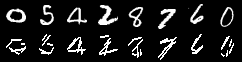 0 5 4 2 8 7 6 0
0 5 4 2 8 7 6 0